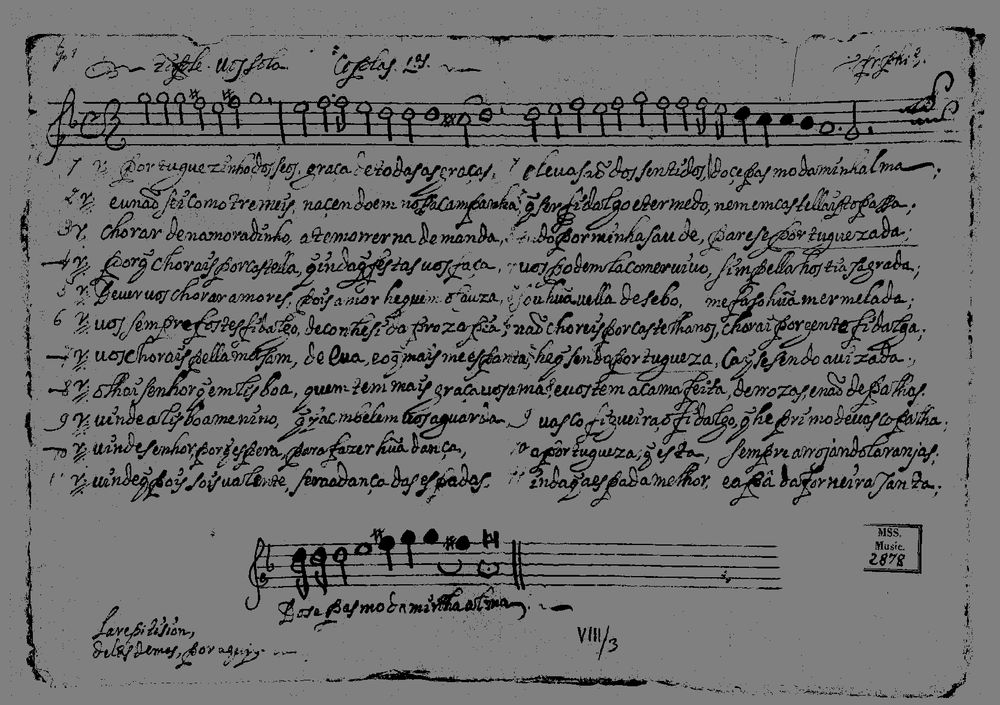 tiple. vos sola Coplas. 1as.
1 Portuguezinho dos ceos, graça de todas as graças, elevasaõ dos sentidos doce pasmo da minha alma;
2 eu naõ sei como tremeis, nacendo em nosa campanha, q̃ ser fidalgo e ter medo, nem em castella isto passa;
3 chorar de namoradinho, a temorrer na demanda, por minha sau de, parese portuguezada;
4 porq̃ chorais por castella, q̃ inda q̃ festas vos faça, vos podem la comer vivo, sim pella hostia sagrada;
5 he ver vos chorar amores, pois amor he quem o cauza, sou huã vella de sebo, me faso huã mermelada;
6 vos sempre fostes fidalgo, naõ choreis por castelhanos, chorai por gente fidalga.
7 vos chorais pella masam, de Eva, e o q̃ mais me espanta, he q̃ sendo portugueza, cayse sendo avizada.
8 olhai senhor q̃ em lisboa, quem tem mais graça vos ama, e vos tem a cama feita, de rozas, e naõ de palhas.
9 vinde a lisboa menino, q̃ ja em belem vos aguarda 9 vasco figueira o fidalgo, q̃ he primo de vasco palha.
10 vinde senhor por q̃ espera, para fazer huã dança, a portugueza, q̃ esta, sempre arrojando laranjas.
11 vinde q̃ pois sois valente, sera a dança das espadas. inda q̃ a espada melhor, e a pâ da forneira santa.
MSS.
Music.
2878
Dose pasmo da minha alma,
La repitision,
de las demas, por aqui.
VIII/3